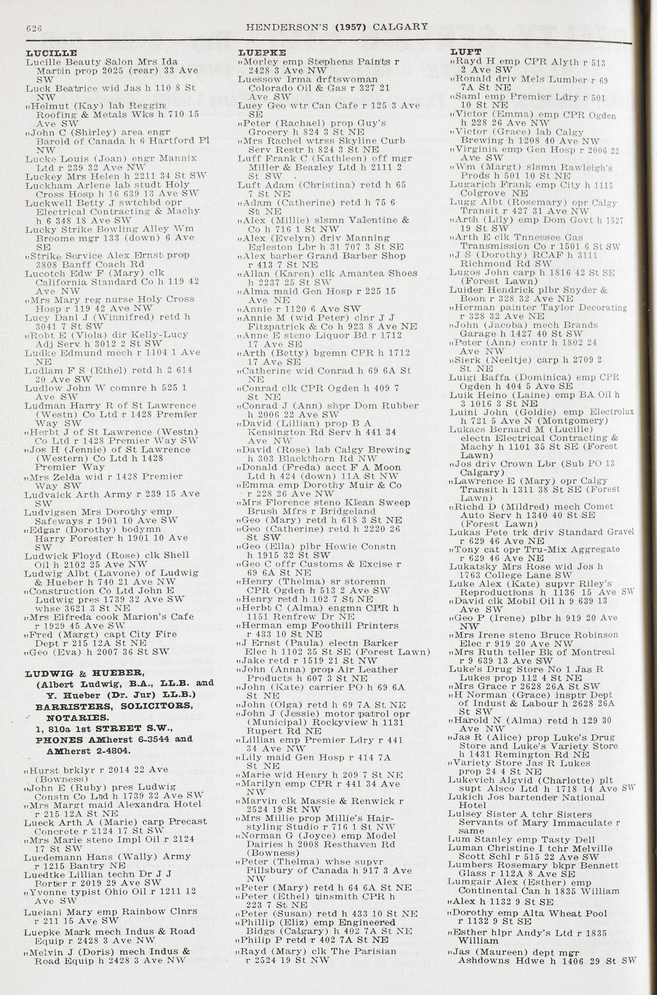 626
HENDERSON'S (1957) CALGARY
LUCILLE
Lucille Beauty Salon Mrs Ida
Martin prop 2025 (rear) 33 Ave
SW
Luck Beatrice wid Jas h 110 8 St
NW
„Helmut (Kay) lab Reggin
Roofing & Metals Wks h 710 15
Ave SW
„John C (Shirley) area engr
Baroid of Canada h 6 Hartford Pl
NW
Lucke Louis (Joan) engr Mannix
Ltd r 239 32 Ave NW
Luckey Mrs Helen h 2211 34 St SW
Luckham Arlene lab studt Holy
Cross Hosp h 16 639 13 Ave SW
Luckwell Betty J swtchbd opr
Electrical Contracting & Machy
h 6 348 18 Ave SW
Lucky Strike Bowling Alley Wm
Broome mgr 133 (down) 6 Ave
SE
„Strike Service Alex Ernst prop
3808 Banff Coach Rd
Lucotch Edw F (Mary) clk
California Standard Co h 119 42
Ave NW
„Mrs Mary reg nurse Holy Cross
Hosp r 119 42 Ave NW
Lucy Danl J (Winnifred) retd h
3041 7 St SW
„Robt E (Viola) dir Kelly-Lucy
Adj Serv h 3012 2 St SW
Ludke Edmund mech r 1104 1 Ave
NE
Ludlam F S (Ethel) retd h 2 614
20 Ave SW
Ludlow John W comnre h 525 1
Ave SW
Ludman Harry R of St Lawrence
(Westn) Co Ltd r 1428 Premier
Way SW
„Herbt J of St Lawrence (Westn)
Co Ltd r 1428 Premier Way SW
„Jos H (Jennie) of St Lawrence
(Western) Co Ltd h 1428
Premier Way
„Mrs Zelda wid r 1428 Premier
Way SW
Ludvaick Arth Army r 239 15 Ave
SW
Ludvigsen Mrs Dorothy emp
Safeways r 1901 10 Ave SW
„Edgar (Dorothy) bodymn
Harry Forester h 1901 10 Ave
SW
Ludwick Floyd (Rose) clk Shell
Oil h 2102 25 Ave NW
Ludwig Albt (Lavone) of Ludwig
& Hueber h 740 21 Ave NW
„Construction Co Ltd John E
Ludwig pres 1739 32 Ave SW
whse 3621 3 St NE
„Mrs Elfreda cook Marion's Cafe
r 1929 45 Ave SW
„Fred (Margt) capt City Fire
Dept r 215 12A St NE
„Geo (Eva) h 2007 36 St SW
LUDWIG & HUEBER,
(Albert Ludwig, B.A., LL.B. and
Y. Hueber (Dr. Jur) LL.B.)
BARRISTERS, SOLICITORS,
NOTARIES.
1, 810a 1st STREET S.W.,
PHONES AMherst 6-3544 and
AMherst 2-4804.
„Hurst brklyr r 2014 22 Ave
(Bowness)
„John E (Ruby) pres Ludwig
Constn Co Ltd h 1739 32 Ave SW
„Mrs Margt maid Alexandra Hotel
r 215 12A St NE
Lueck Arth A (Marie) carp Precast
Concrete r 2124 17 St SW
„Mrs Marie steno Impl Oil r 2124
17 St SW
Luedemann Hans (Wally) Army
r 1215 Bantry NE
Luedtke Lillian techn Dr J J
Porter r 2019 29 Ave SW
„Yvonne typist Ohio Oil r 1211 12
Ave SW
Lueiani Mary emp Rainbow Clnrs
r 211 15 Ave SW
Luepke Mark mech Indus & Road
Equip r 2428 3 Ave NW
„Melvin J (Doris) mech Indus &
Road Equip h 2428 3 Ave NW
LUEPKE
„Morley emp Stephens Paints r
2428 3 Ave NW
Luessow Irma drftswoman
Colorado Oil & Gas r 327 21
Ave SW
Luey Geo wtr Can Cafe r 125 3 Ave
SE
„Peter (Rachael) prop Guy's
Grocery h 824 3 St NE
„Mrs Rachel wtrss Skyline Curb
Serv Restr h 824 3 St NE
Luff Frank C (Kathleen) off mgr
Miller & Beazley Ltd h 2111 2
St SW
Luft Adam (Christina) retd h 65
7 St NE
„Adam (Catherine) retd h 75 6
St NE
„Alex (Millie) slsmn Valentine &
Co h 716 1 St NW
„Alex (Evelyn) driv Manning
Egleston Lbr h 31 707 3 St SE
„Alex barber Grand Barber Shop
r 413 7 St NE
„Allan (Karen) clk Amantea Shoes
h 2237 25 St SW
„Alma maid Gen Hosp r 225 15
Ave NE
„Annie r 1120 6 Ave SW
„Annie M (wid Peter) clnr J J
Fitzpatrick & Co h 923 8 Ave NE
„Anne E steno Liquor Bd r 1712
17 Ave SE
„Arth (Betty) bgemn CPR h 1712
17 Ave SE
„Catherine wid Conrad h 69 6A St
NE
„Conrad clk CPR Ogden h 409 7
St NE
„Conrad J (Ann) shpr Dom Rubber
h 2006 22 Ave SW
„David (Lillian) prop B A
Kensington Rd Serv h 441 34
Ave NW
„David (Rose) lab Calgry Brewing
h 303 Blackthorn Rd NW
„Donald (Freda) acct F A Moon
Ltd h 424 (down) 11A St NW
„Emma emp Dorothy Muir & Co
r 228 26 Ave NW
„Mrs Florence steno Klean Sweep
Brush Mfrs r Bridgeland
„Geo (Mary) retd h 618 3 St NE
„Geo (Catherine) retd h 2220 26
St SW
„Geo (Ella) plbr Howie Constn
h 1915 32 St SW
„Geo C offr Customs & Excise r
69 6A St NE
„Henry (Thelma) sr storemn
CPR Ogden h 513 2 Ave SW
„Henry retd h 102 7 St NE
„Herbt C (Alma) engmn CPR h
1151 Renfrew Dr NE
„Herman emp Foothill Printers
r 433 10 St NE
„J Ernst (Paula) electn Barker
Elec h 1102 35 St SE (Forest Lawn)
„Jake retd r 1519 21 St NW
„John (Anna) prop Air Leather
Products h 607 3 St NE
„John (Kate) carrier PO h 69 6A
St NE
„John (Olga) retd h 69 7A St NE
„John J (Jessie) motor patrol opr
(Municipal) Rockyview h 1131
Rupert Rd NE
„Lillian emp Premier Ldry r 441
34 Ave NW
„Lily maid Gen Hosp r 414 7A
St NE
„Marie wid Henry h 209 7 St NE
„Marilyn emp CPR r 441 34 Ave
NW
„Marvin clk Massie & Renwick r
2524 19 St NW
„Mrs Millie prop Millie's Hair-
styling Studio r 716 1 St NW
„Norman G (Joyce) emp Model
Dairies h 2008 Resthaven Rd
(Bowness)
„Peter (Thelma) whse supvr
Pillsbury of Canada h 917 3 Ave
NW
„Peter (Mary) retd h 64 6A St NE
„Peter (Ethel) tinsmith CPR h
223 7 St NE
„Peter (Susan) retd h 433 10 St NE
„Phillip (Eliz) emp Engineered
Bldgs (Calgary) h 402 7A St NE
„Philip P retd r 402 7A St NE
„Rayd (Mary) clk The Parisian
r 2524 19 St NW
LUFT
„Rayd H emp CPR Alyth r 513
2 Ave SW
„Ronald driv Mels Lumber r 69
7A St NE
„Saml emp Premier Ldry r 501
10 St NE
„Victor (Emma) emp CPR Ogden
h 228 26 Ave NW
„Victor (Grace) lab Calgy
Brewing h 1208 40 Ave NW
„Virginia emp Gen Hosp r 2006 22
Ave SW
„Wm (Margt) slsmn Rawleigh's
Prods h 501 10 St NE
Lugarich Frank emp City h 1115
Colgrove NE
Lugg Albt (Rosemary) opr Calgy
Transit r 427 31 Ave NW
„Arth (Lily) emp Dom Govt h 1527
19 St SW
„Arth E clk Tnnessee Gas
Transmission Co r 1501 6 St SW
„J S (Dorothy) RCAF h 3111
Richmond Rd SW
Lugos John carp h 1816 42 St SE
(Forest Lawn)
Luider Hendrick plbr Snyder &
Boon r 328 32 Ave NW
„Herman painter Taylor Decorating
r 328 32 Ave NW
„John (Jacoba) mech Brands
Garage h 1427 40 St SW
„Peter (Ann) contr h 1802 24
Ave NW
„Sierk (Neeltje) carp h 2709 2
St NE
Luigi Baffa (Dominica) emp CPR
Ogden h 404 5 Ave SE
Luik Heino (Laine) emp BA Oil h
3 1016 3 St NE
Luini John (Goldie) emp Electrolux
h 721 5 Ave N (Montgomery)
Lukacs Bernard M (Lucille)
electn Electrical Contracting &
Machy h 1101 35 St SE (Forest
Lawn)
„Jos driv Crown Lbr (Sub PO 13
Calgary)
„Lawrence E (Mary) opr Calgy
Transit h 1311 38 St SE (Forest
Lawn)
„Richd D (Mildred) mech Comet
Auto Serv h 1340 40 St SE
(Forest Lawn)
Lukas Pete trk driv Standard Gravel
r 629 46 Ave NE
„Tony cat opr Tru-Mix Aggregate
r 629 46 Ave NE
Lukatsky Mrs Rose wid Jos h
1763 College Lane SW
Luke Alex (Kate) supvr Riley's
Reproductions h 1136 15 Ave SW
„David clk Mobil Oil h 9 639 13
Ave SW
„Geo P (Irene) plbr h 919 20 Ave
NW
„Mrs Irene steno Bruce Robinson
Elec r 919 20 Ave NW
„Mrs Ruth teller Bk of Montreal
r 9 639 13 Ave SW
Luke's Drug Store No 1 Jas R
Lukes prop 112 4 St NE
„Mrs Grace r 2628 26A St SW
„H Norman (Grace) insptr Dept
of Indust & Labour h 2628 26A
St SW
„Harold N (Alma) retd h 129 30
Ave NW
„Jas R (Alice) prop Luke's Drug
Store and Luke's Variety Store
h 1431 Remington Rd NE
„Variety Store Jas R Lukes
prop 24 4 St NE
Lukevich Algvid (Charlotte) plt
supt Alsco Ltd h 1718 14 Ave SW
Lukich Jos bartender National
Hotel
Lulsey Sister A tchr Sisters
Servants of Mary Immaculate r
same
Lum Stanley emp Tasty Dell
Luman Christine I tchr Melville
Scott Schl r 515 22 Ave SW
Lumbers Rosemary bkpr Bennett
Glass r 112A 8 Ave SE
Lumgair Alex (Esther) emp
Continental Can h 1835 William
„Alex h 1132 9 St SE
„Dorothy emp Alta Wheat Pool
r 1132 9 St SE
„Esther hlpr Andy's Ltd r 1835
William
„Jas (Maureen) dept mgr
Ashdowns Hdwe h 1406 29 St SW